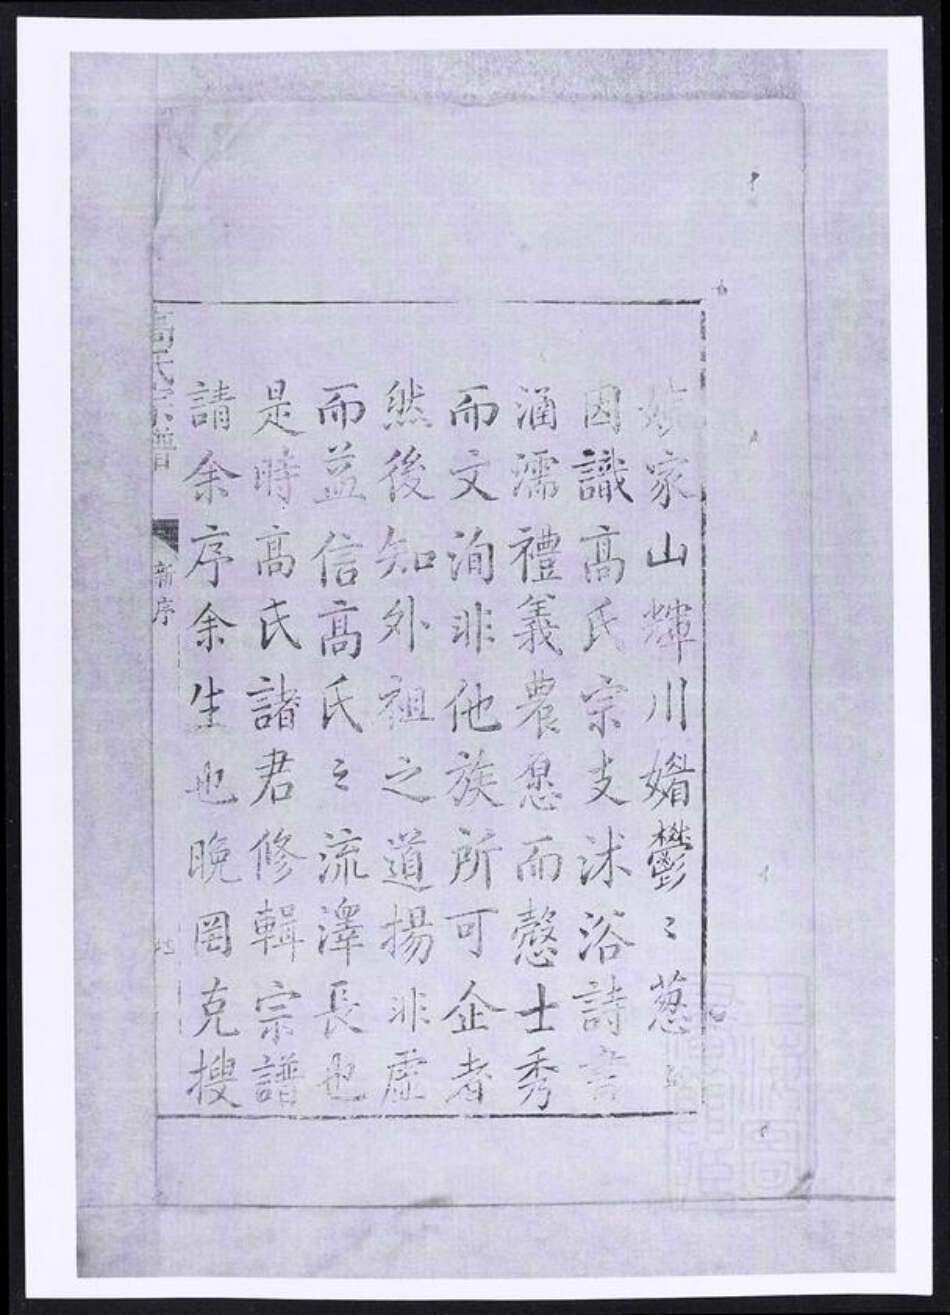 家山輝川媚鬱〻葱〻
因識高氏宗支沐浴詩書
涵濡禮義農愿而愨士秀
而文洵非他族所可企者
然後知外祖之道揚非虛
而益信高氏〻流澤長也
是時高氏諸君修輯宗譜
請余序余生也晚罔克搜
高氏宗譜
新序